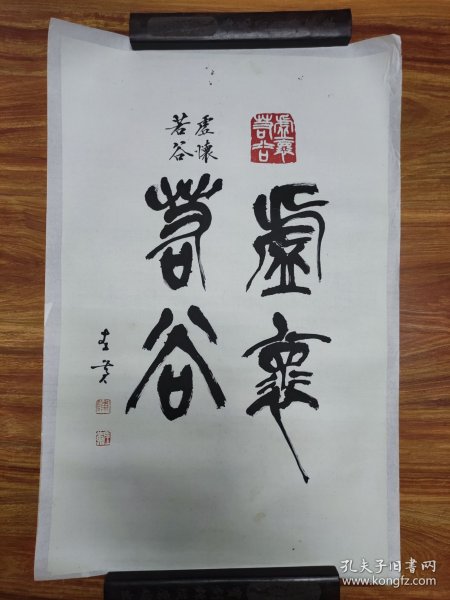 虛褱
若谷
虛褱
若谷
虛懷
若谷
孔夫子旧书网
www.kongfz.com